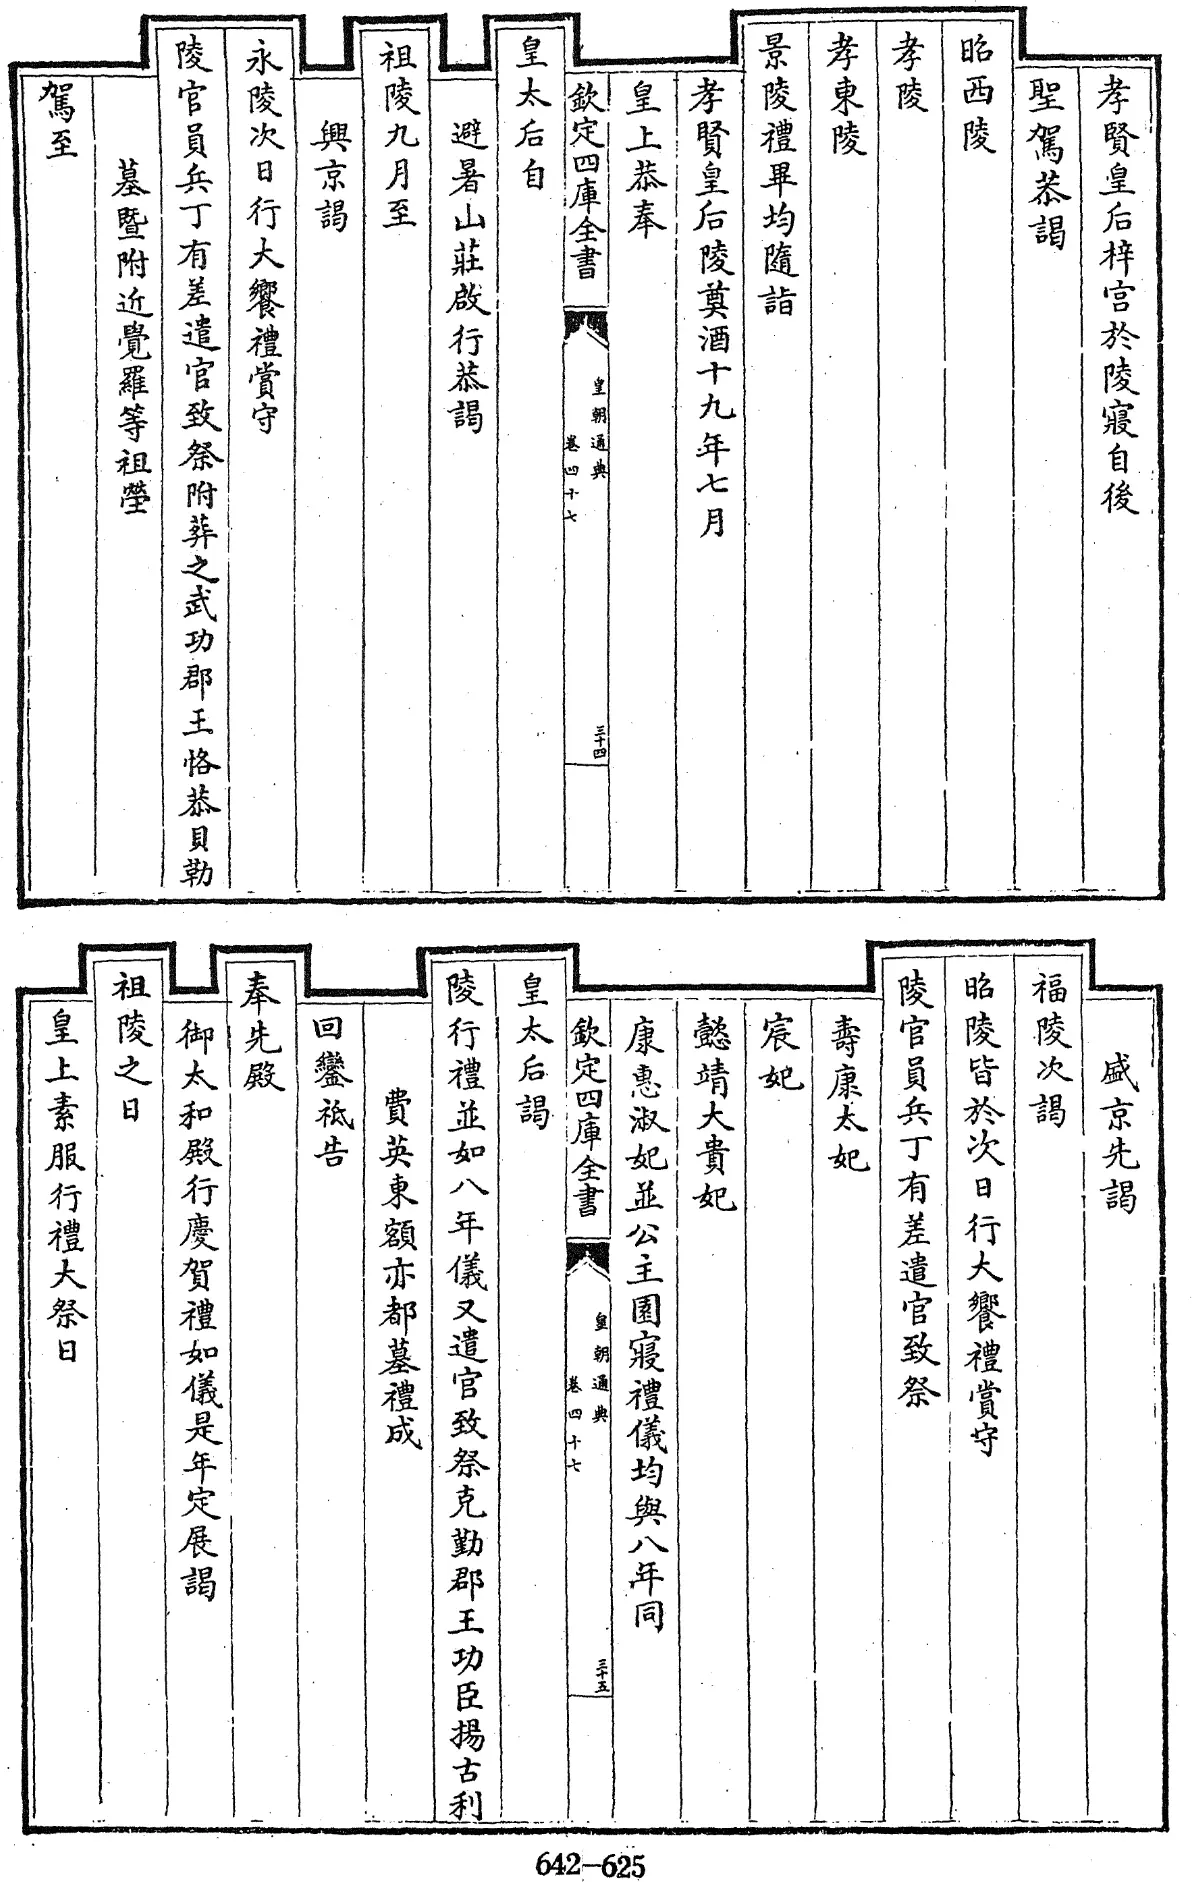 孝賢皇后梓宫於陵寢自後
聖駕恭謁
昭西陵
孝陵
孝東陵
景陵禮畢均隨詣
孝賢皇后陵奠酒十九年七月
皇上恭奉
欽定四庫全書
皇朝通典
卷四十七
三十四
皇太后自
避暑山莊啟行恭謁
祖陵九月至
興京謁
永陵次日行大饗禮賞守
陵官員兵丁有差遣官致祭附葬之武功郡王恪恭貝勒
墓暨附近覺羅等祖塋
駕至
盛京先謁
福陵次謁
昭陵皆於次日行大饗禮賞守
陵官員兵丁有差遣官致祭
壽康太妃
宸妃
懿靖大貴妃
康惠淑妃並公主園寢禮儀均與八年同
欽定四庫全書
皇朝通典
卷四十七
三十五
皇太后謁
陵行禮並如八年儀又遣官致祭克勤郡王功臣揚古利
費英東額亦都墓禮成
回鑾祗告
奉先殿
御太和殿行慶賀禮如儀是年定展謁
祖陵之日
皇上素服行禮大祭日
642-625